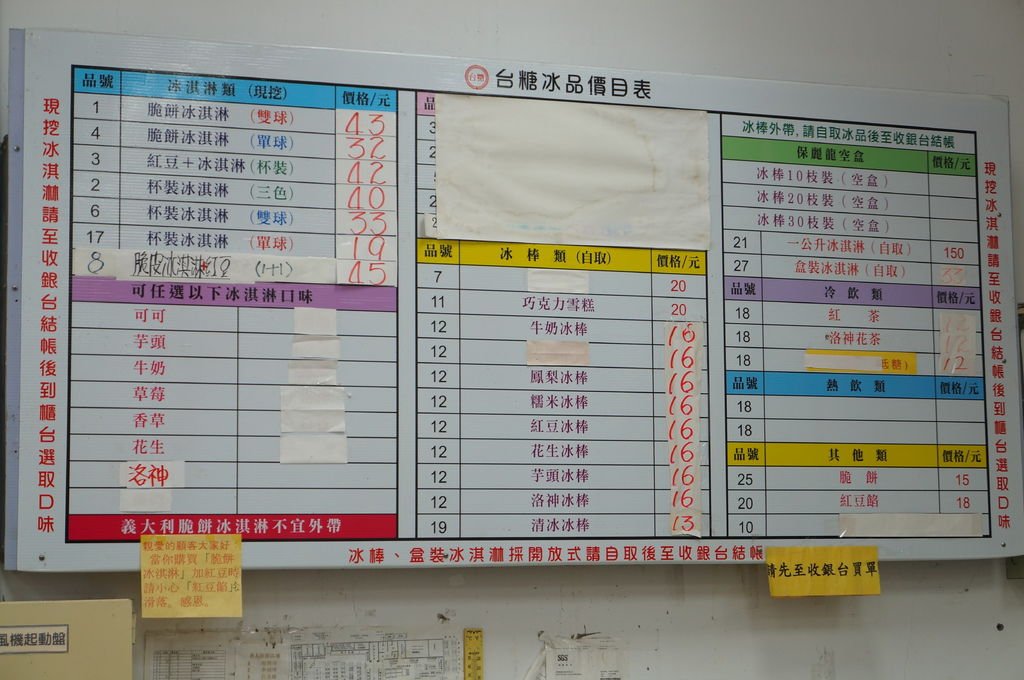 台糖 台糖冰品價目表
現挖冰淇淋請至收銀台結帳後到櫃台選取口味
品號 冰淇淋類(現挖) 價格/元
1 脆餅冰淇淋 (雙球) 43
4 脆餅冰淇淋 (單球) 32
3 紅豆+冰淇淋(杯裝) 42
2 杯裝冰淇淋 (三色) 40
6 杯裝冰淇淋 (雙球) 33
17 杯裝冰淇淋 (單球) 19
8 脆皮冰淇淋紅豆 (1+1) 45
可任選以下冰淇淋口味
可可
芋頭
牛奶
草莓
香草
花生
洛神
義大利脆餅冰淇淋不宜外帶
品號 冰棒類(自取) 價格/元
7 20
11 巧克力雪糕 20
12 牛奶冰棒 16
12 16
12 鳳梨冰棒 16
12 糯米冰棒 16
12 紅豆冰棒 16
12 花生冰棒 16
12 芋頭冰棒 16
12 洛神冰棒 16
19 清冰冰棒 13
冰棒外帶,請自取冰品後至收銀台結帳
保麗龍空盒 價格/元
冰棒10枝裝(空盒)
冰棒20枝裝(空盒)
冰棒30枝裝(空盒)
21 一公升冰淇淋(自取) 150
27 盒裝冰淇淋(自取) 33
品號 冷飲類 價格/元
18 紅茶 12
18 洛神花茶 12
18 低糖) 12
品號 熱飲類 價格/元
18
18
品號 其他類 價格/元
25 脆餅 15
20 紅豆餡 18
10
現挖冰淇淋請至收銀台結帳後到櫃台選取口味
冰棒、盒裝冰淇淋採開放式請自取後至收銀台結帳
請先至收銀台買單
親愛的顧客大家好:
當你購買「脆餅
冰淇淋」加紅豆時
請小心「紅豆餡」
滑落。感恩。
風機起動盤
SGS